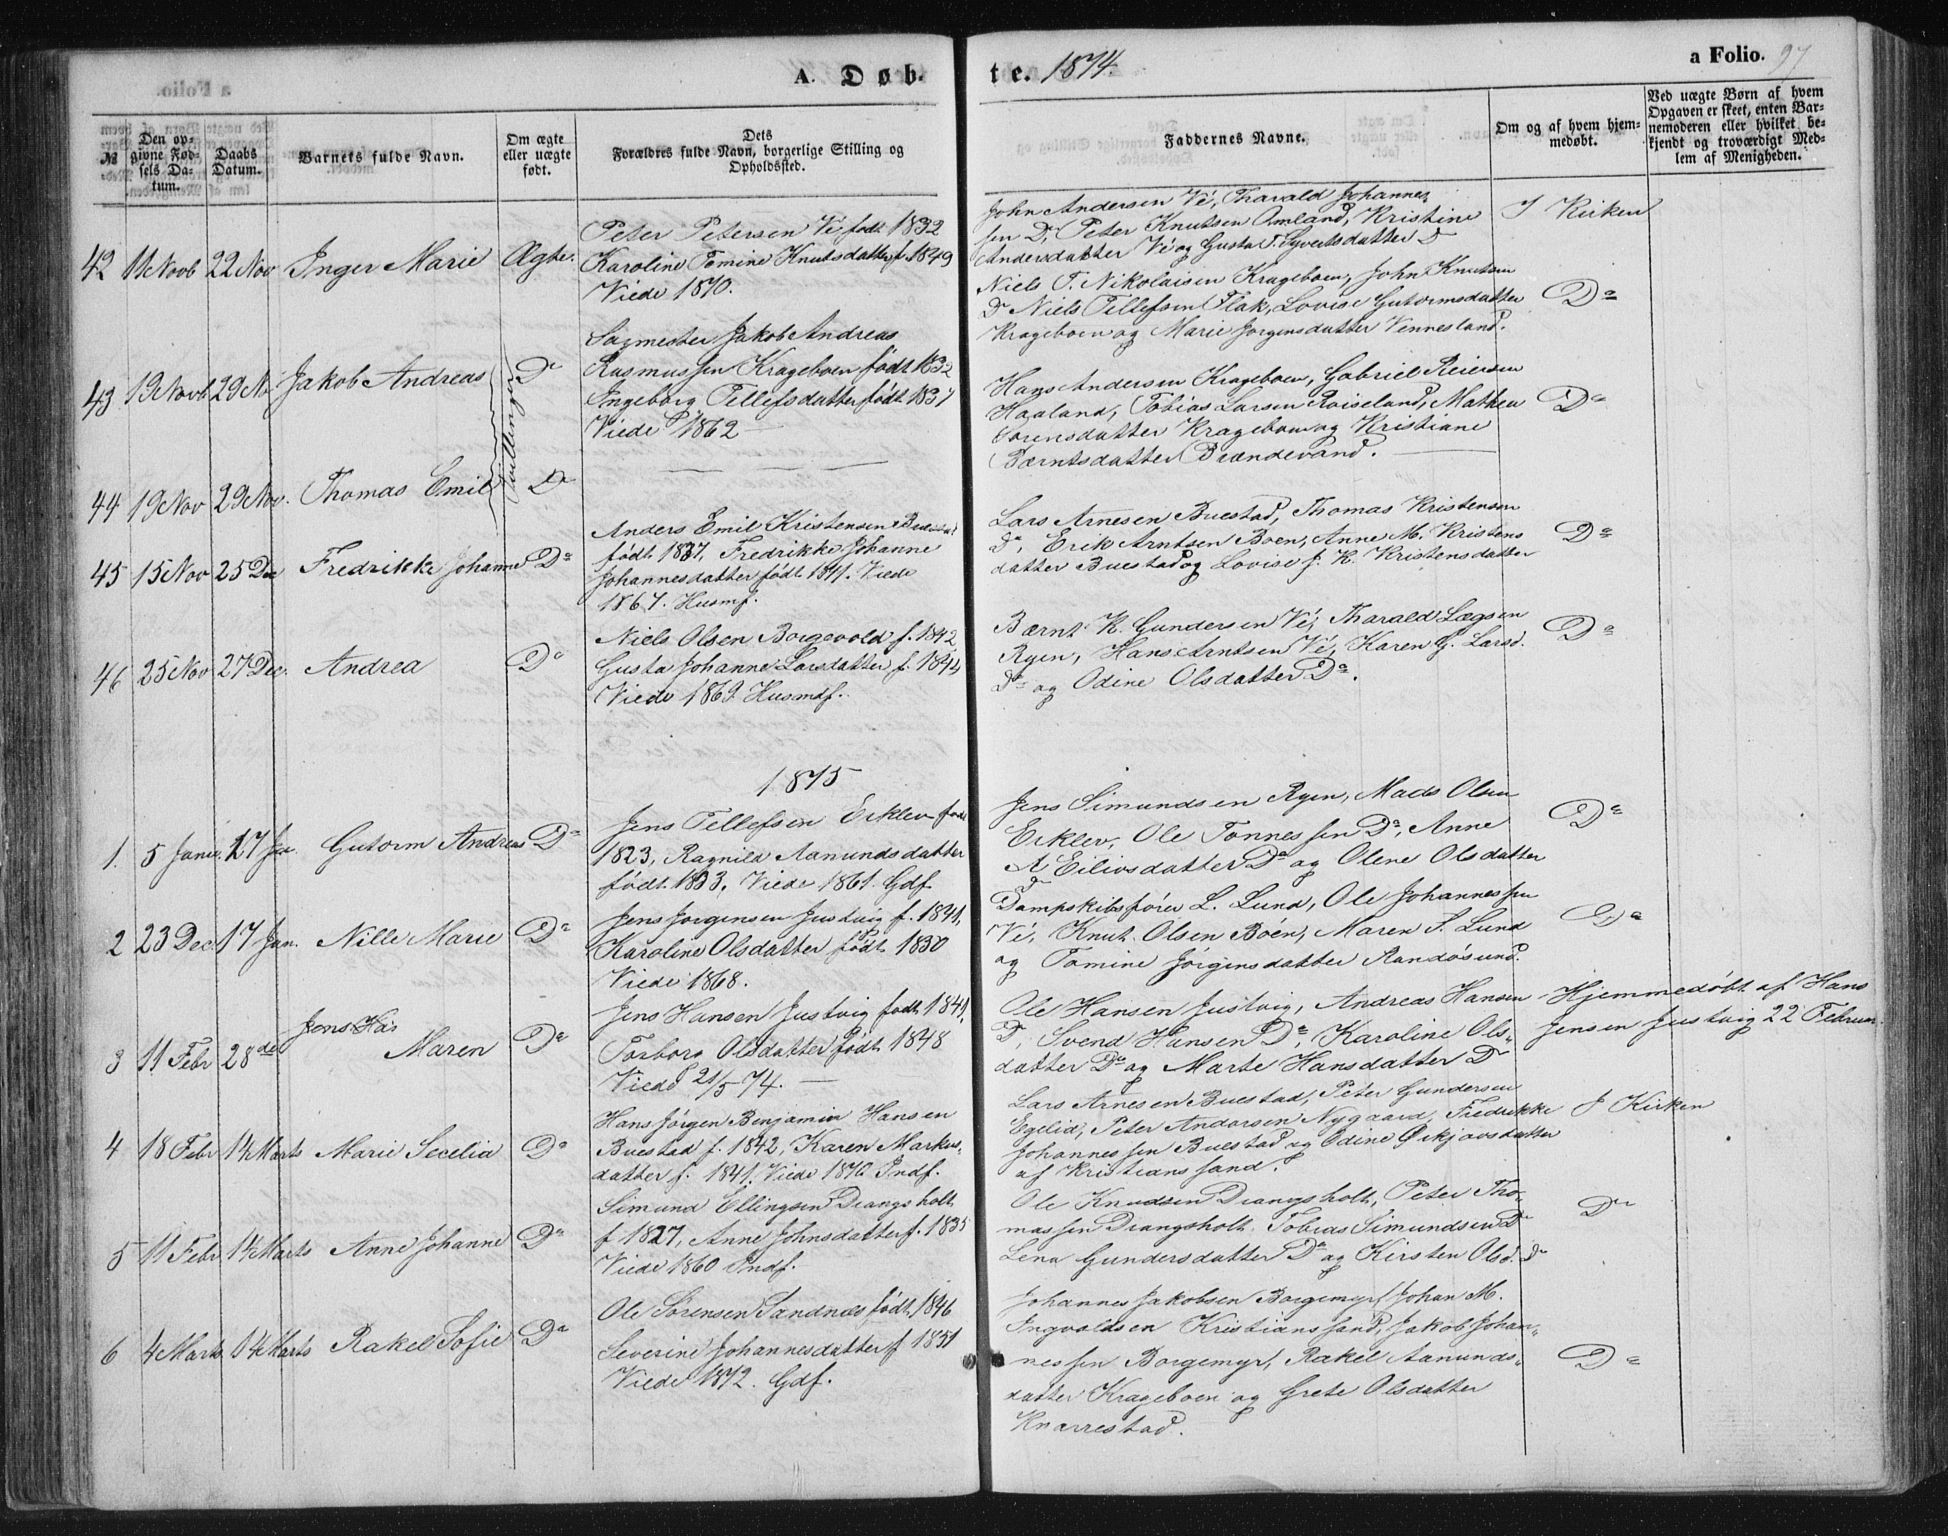 A. Døb-
te. 1874.
a Folio. 97
№
Den op-
givne Fød-
sels Da-
tum.
Daabs
Datum.
Barnets fulde Navn.
Om ægte
eller uægte
født.
Dets
Forældres fulde Navn, borgerlige Stilling og
Opholdssted.
Faddernes Navne.
Om og af hvem hjem-
medøbt.
Ved uægte Børn af hvem
Opgaven er skeet, enten Bar-
nemoderen eller hvilket be-
kjendt og troværdigt Med-
lem af Menigheden.
42 11 Novb 22 Nov Inger Marie Ægte.
Peter Petersen Vé født 1832
Karoline Tomine Knutsdatter f. 1849
Viede 1870.
John Andersen Vé, Tharald Johannes
sen Do, Peter Knutsen Omland, Kristine
Andersdatter Vé og Gusta T. Syvertsdatter Do
I Kirken
43 19 Novb 29 No Jakob Andreas Do
Tvillinger
Sagmester Jakob Andreas
Rasmussen Krageboen født 1832
Ingeborg Tellefsdatter født 1837
Viede 1862
Niels T. Nikolaisen Krageboen, John Knutsen
Do Niels Tellefsen Flak, Lovise Gutormsdatter
Krageboen og Marie Jorgensdatter Vennesland.
Do
44 19 Nov 29 Nov. Thomas Emil Do
Hans Andersen Krageboen, Gabriel Reiersen
Haaland, Tobias Larsen Roiseland, Mathea
Sorensdatter Krageboen og Kristiane
Bærntsdatter Brændevand.
Do
45 15 Nov 25 Dec Fredrikke Johanne Do
Anders Emil Kristensen
født 1837. Fredrikke Johanne
Johannesdatter født 1841. Viede
1867. Husmf.
Lars Arnesen Buestad, Thomas Kristensen
Do, Erik Arntsen Boen, Anne M. Kristens
datter Buestad og Lovise J. K. Kristensdatter
Do
46 25 Nov 27 Dec. Andrea Do
Niels Olsen Borgevold f. 1842
Gusta Johanne Larsdatter f. 1844
Viede 1869. Husmdf.
Bærnt K. Gundersen Vé, Tharald Lægsen
Ryen, Hans Arntsen Vé, Karen G. Larsd.
Do og Odine Olsdatter Do.
Do
1875
1. 5 Janu. 17 Jan Gutorm Andreas Do
Jens Tellefsen Erklev født
1823, Ragnild Aamundsdatter
født 1833. Viede 1861. Gdf
Jens Simundsen Ryen, Mads Olsen
Erklev, Ole Tonnessen Do, Anne
A Eilivsdatter Do og Olene Olsdatter
Do
Do
2 23 Dec 17 Jan. Nille Marie Do
Jens Jorgensen Justvig f. 1841.
Karoline Olsdatter født 1830
Viede 1868.
Dampskibsfører L. Lund, Ole Johannessen
Vé, Knut Olsen Boén, Maren S. Lund
og Tomine Jorgensdatter Randøsund.
Do
3 11 Febr 28de Jens Has
Maren Do
Jens Hansen Justvig født 1841,
Torborg Olsdatter født 1848
Viede 21/5 74.
Ole Hansen Justvig, Andreas Hansen
Do, Svend Hansen Do, Karoline Ols-
datter Do og Marte Hansdatter Do
Hjemmedøbt af Hans
Jensen Justvig 22 Februar.
4 18 Febr 14 Marts Marie Secelia Do
Hans Jørgen Benjamin Hansen
Buestad f. 1842, Karen Markus-
datter f. 1841. Viede 1870 Indf.
Lars Arnesen Buestad, Peter Gundersen
Egelid, Peter Andersen Nygaard, Fredrikke
Johannessen Buestad og Odine datter
af Kristianssand.
I Kirken
5 11 Febr 14 Marts Anne Johanne Do
Simund Ellingsen Drangsholt
f 1827, Anne Johnsdatter f. 1835
Viede 1860 Indf.
Ole Knudsen Drangsholt, Peter Tho-
massen Drangsholt. Tobias Simundsen Do
Lena Gundersdatter Do og Kirsten Olsd. Do
Do
6 4 Marts 14 Marts Rakel Sofie Do
Ole Sörensen Sandnæs født 1846
Severine Johannesdatter f 1851
Viede 1872. Gdf.
Johannes Jakobsen Borgemyr, Johan M.
Ingvoldsen Kristianssand, Jakob Johan-
nessen Borgemyr, Rakel Aamunds-
datter Krageboen og Grete Olsdatter
Knarrestad.
Do